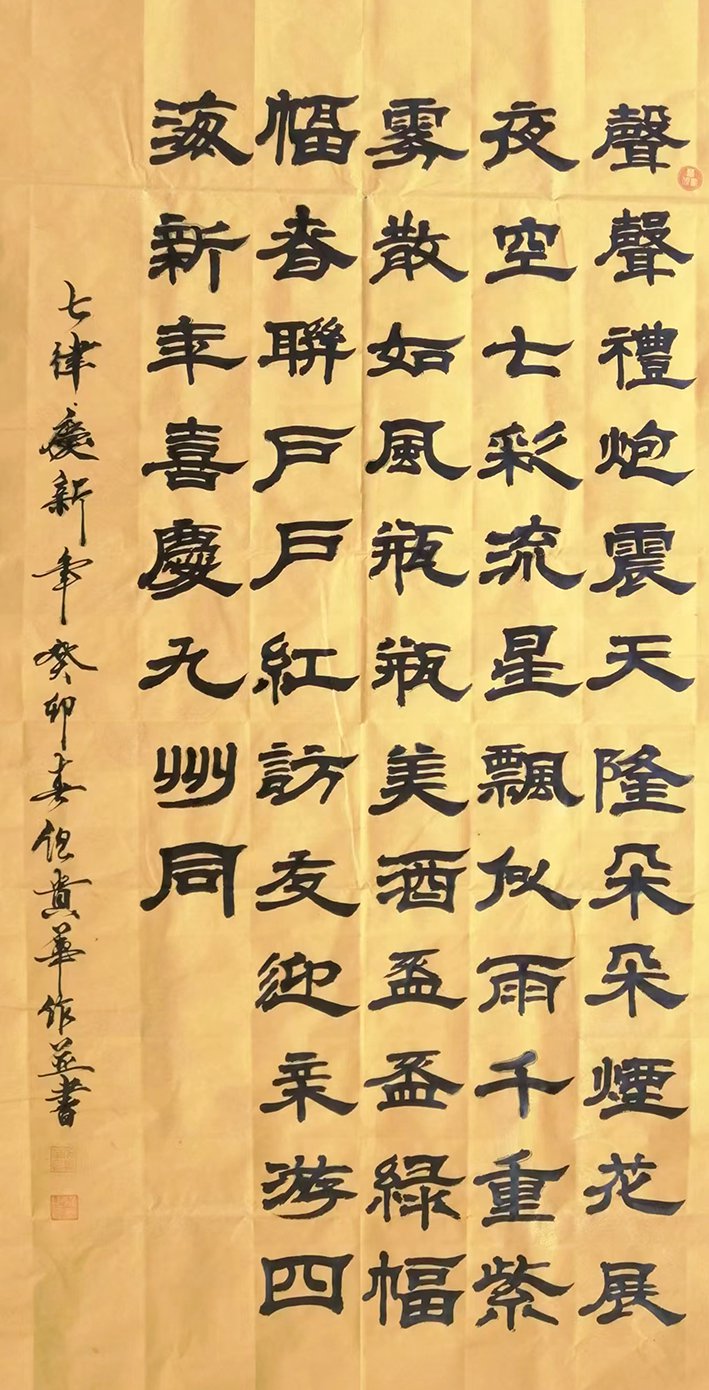 聲聲禮炮震天隆朵朵煙花展
夜空七彩流星飄似雨千重紫
雾散如風瓶瓶美酒盃盃緑幅
幅春聯戶戶紅訪友迎亲游四
海新年喜慶九州同
七律慶新年癸卯春但貴華作並書